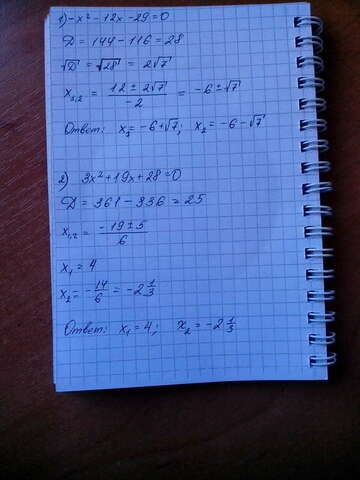 1) -x² - 12x - 29 = 0
D = 144 - 116 = 28
√D = √28 = 2√7
x₁,₂ = (12 ± 2√7)/(-2) = -6 ± √7
Ответ: x₁ = -6 + √7; x₂ = -6 - √7
2) 3x² + 19x + 28 = 0
D = 361 - 336 = 25
x₁,₂ = (-19 ± 5)/6
x₁ = 4
x₂ = -14/6 = -2 1/3
Ответ: x₁ = 4; x₂ = -2 1/3